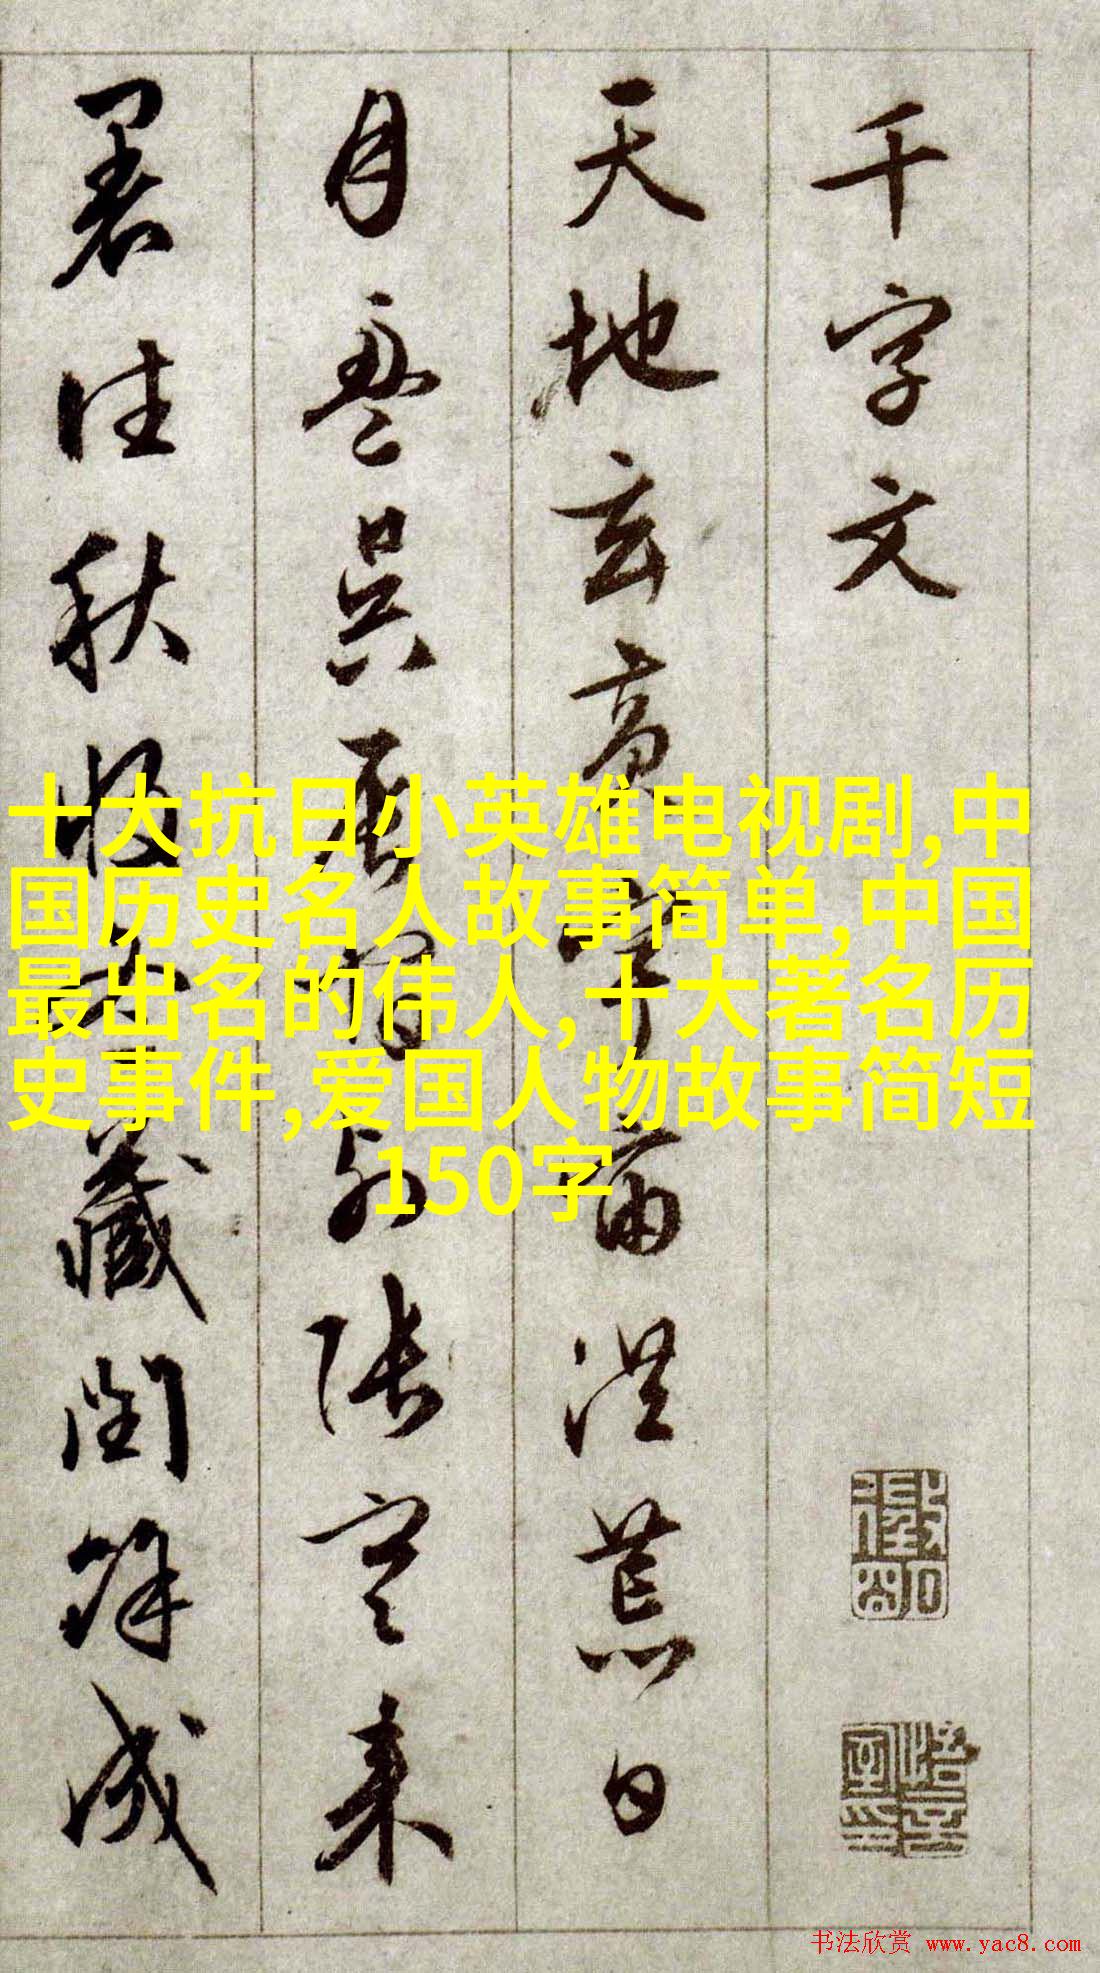 千字文
天地玄黄宇宙洪荒日
月盈昃辰宿列张寒来
暑往秋收冬藏闰馀成
十大抗日小英雄电视剧,中
国历史名人故事简单,中国
最出名的伟人,十大著名历
史事件,爱国人物故事简短
150字
书法欣赏 www.yac8.com